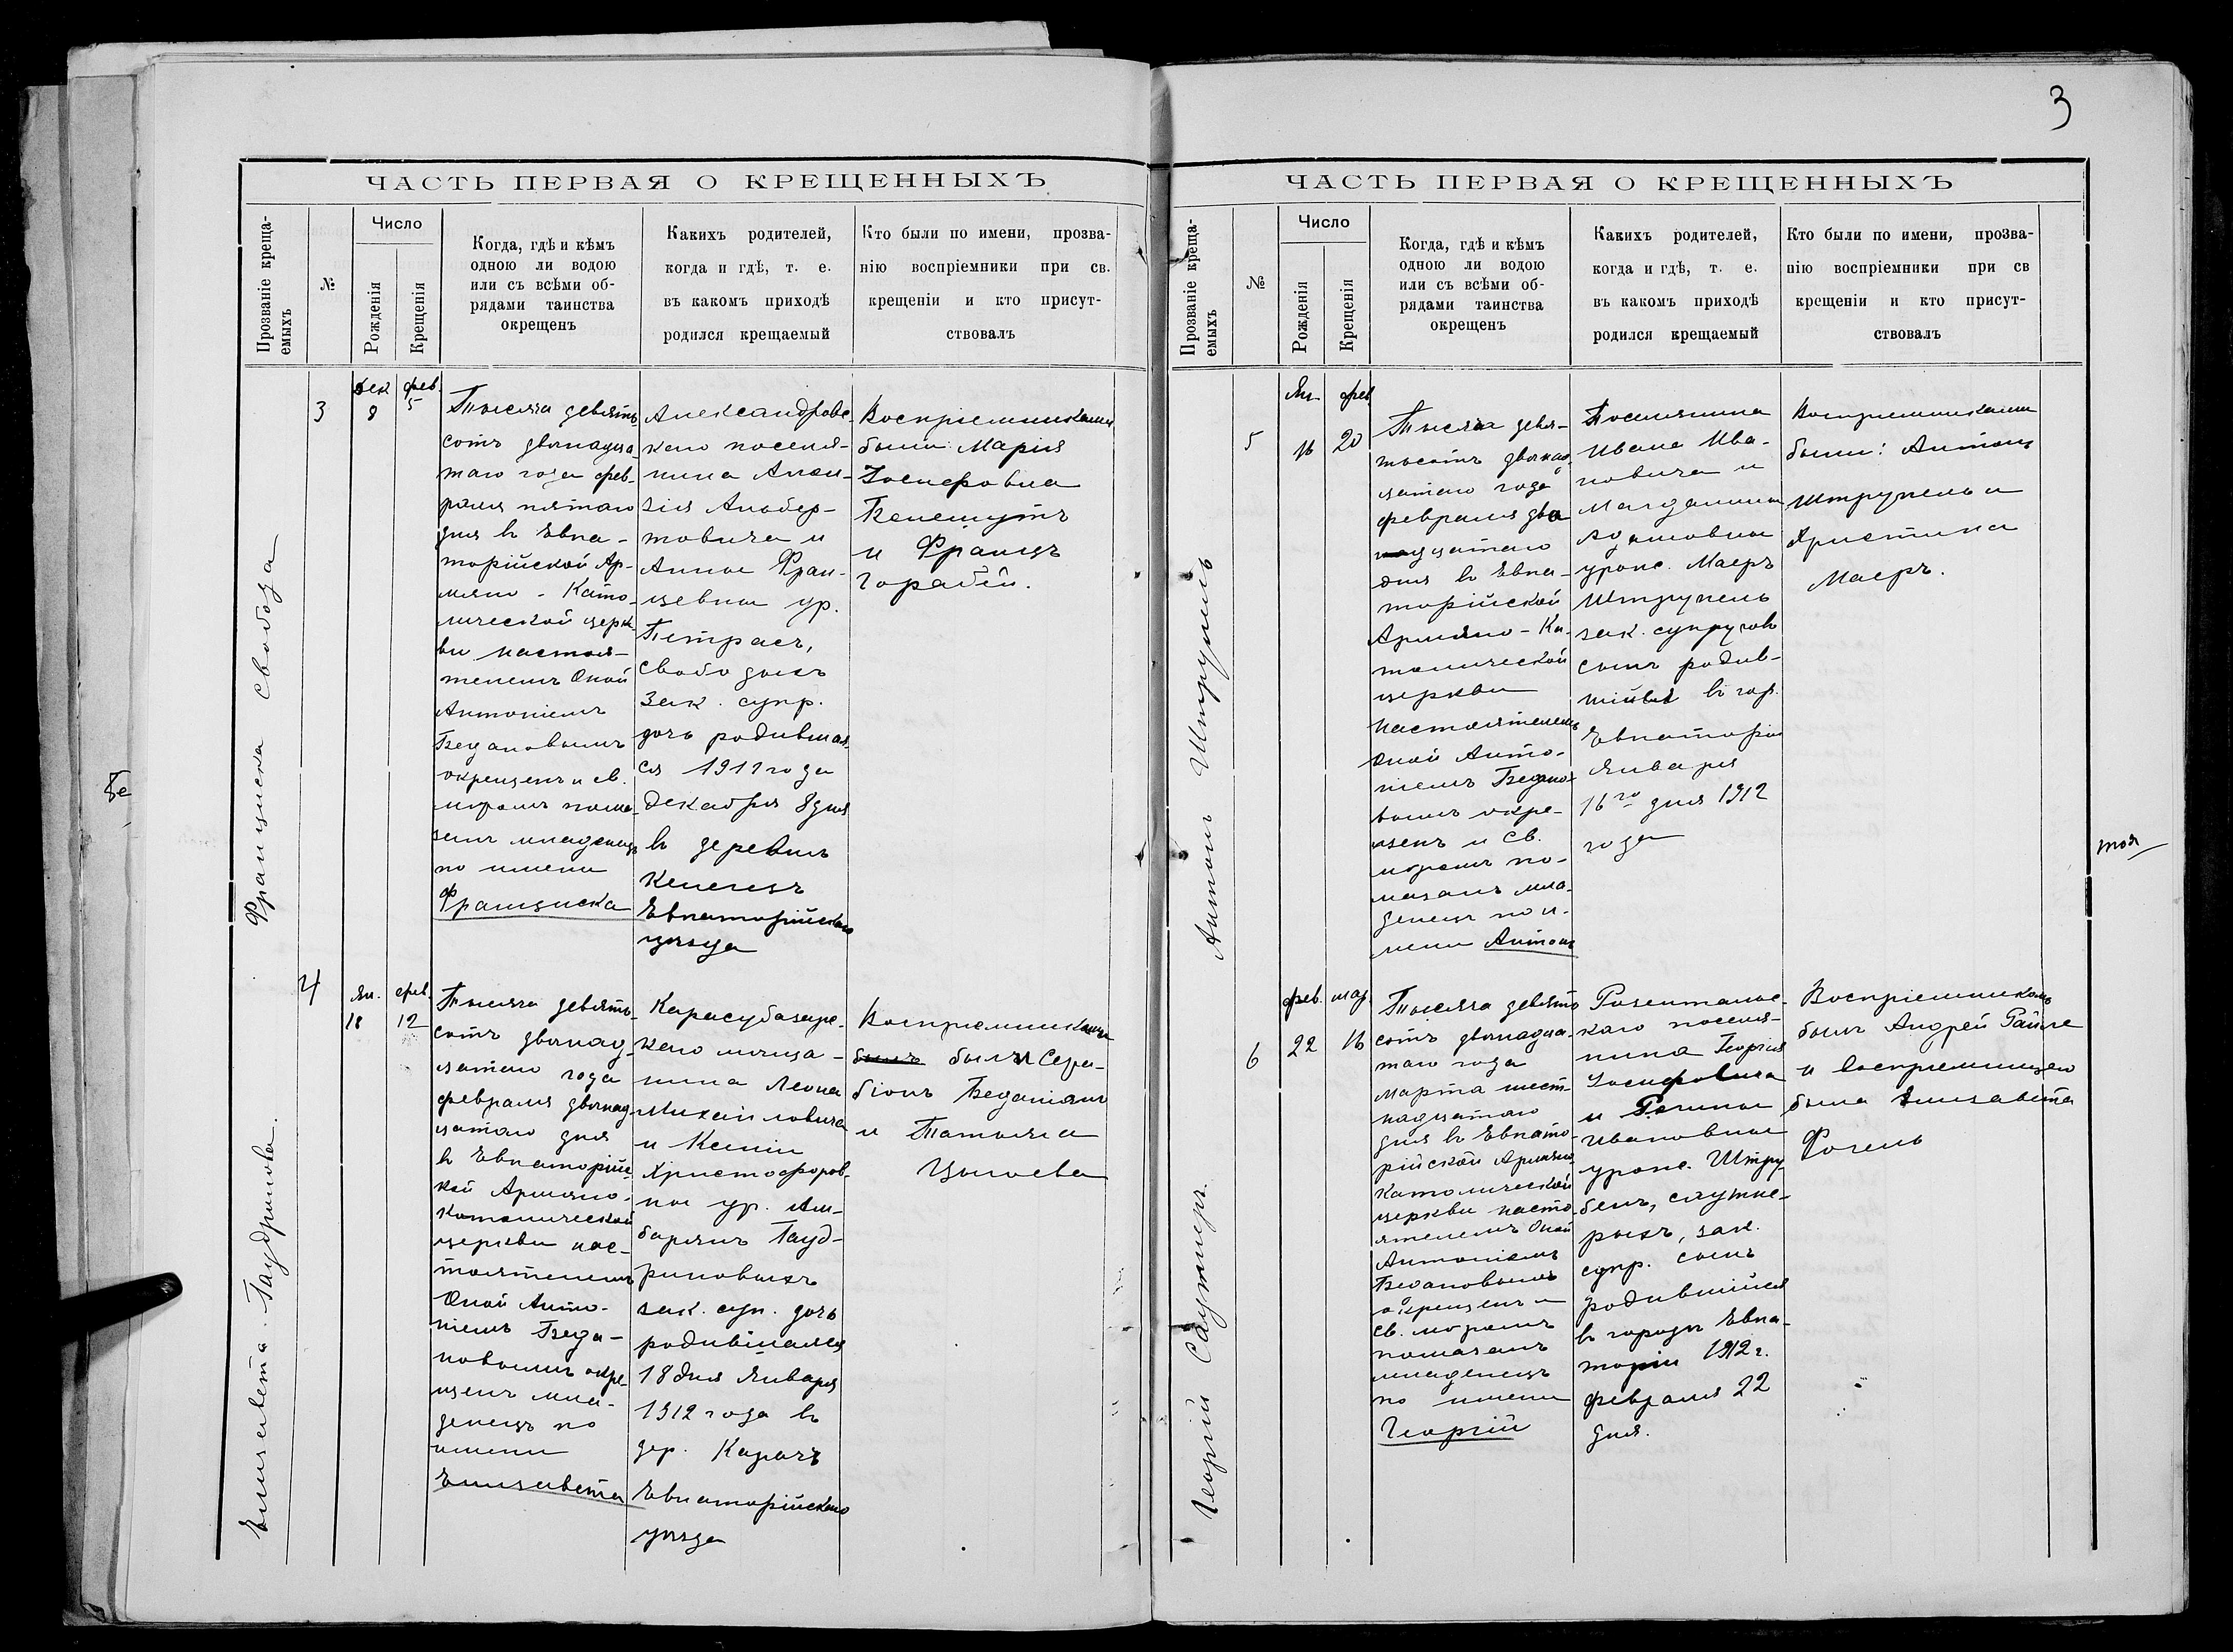 3
ЧАСТЬ ПЕРВАЯ О КРЕЩЕННЫХЪ
Прозваніе креща-
емыхъ
№
Число
Рожденія
Крещенія
Когда, гдѣ и кѣмъ
одною ли водою
или съ всѣми об-
рядами таинства
окрещенъ
Какихъ родителей,
когда и гдѣ, т. е.
въ какомъ приходѣ
родился крещаемый
Кто были по имени, прозва-
нію воспріемники при св.
крещеніи и кто присут-
ствовалъ
Франциска Свобода
3
дек
8
фев.
5
Тысяча девять
сотъ двѣнадца
таго года фев-
раля пятаго
дня въ Евпа-
торійской Ар-
мяно-Като-
лической церк-
ви настоя-
телемъ оной
Антоніемъ
Бедановымъ
окрещенъ и св.
мѵромъ пома
занъ младенецъ
по имени
Франциска
Александровс
каго поселя-
нина Алои-
зія Альбер-
товича и
Анны Фран-
цевны ур.
Петрасъ,
Свободыхъ
Зак. супр.
дочь родившая
ся 1911 года
Декабря 8 дня
въ деревнѣ
Евпаторійскаго
уѣзда
Воспріемниками
были Марія
Іосифовна
и Францъ
Елизавета Гаудринова.
4
Ян.
18
фев.
12
Тысяча девять
сотъ двѣнад
цатаго года
февраля двѣнад
цатаго дня
въ Евпаторійс
кой Армяно-
Католической
церкви нас-
тоятелемъ
Оной Анто-
ніемъ Беда-
новымъ окре
щенъ мла-
денецъ по
имени
Елизавета
Карасубазарс-
каго мѣща-
нина Леона
Михайловича
и Ксеніи
Христофоров
ны ур. Ам-
барянъ Гауд-
риновыхъ
зак. суп. дочь
родившаяся
18 дня Января
1912 года въ
дер. Карачъ
Евпаторійскаго
уѣзда
Воспріемниками
были Сера-
біонъ Беданянъ
и Татьяна
ЧАСТЬ ПЕРВАЯ О КРЕЩЕННЫХЪ
Прозваніе креща-
емыхъ
№
Число
Рожденія
Крещенія
Когда, гдѣ и кѣмъ
одною ли водою
или съ всѣми об-
рядами таинства
окрещенъ
Какихъ родителей,
когда и гдѣ, т. е.
въ какомъ приходѣ
родился крещаемый
Кто были по имени, прозва-
нію воспріемники при св
крещеніи и кто присут-
ствовалъ
Антонъ Штрупель
5
Ян
16
фев
20
Тысяча девя-
тьсотъ двѣнад
цатаго года
февраля два
дцатаго
дня въ Евпа-
торійской
Армяно-Ка
толической
церкви
настоятелемъ
оной Анто-
ніемъ Бедано
вымъ окре-
щенъ и св.
мѵромъ по-
мазанъ мла-
денецъ по и-
мени Антонъ
Поселянина
Ивана Ива-
новича и
Магдалины
Адамовны
урожд. Маеръ
Штрупель
зак. супруговъ
сынъ родив-
шійся въ гор.
Евпаторіи
Января
16го дня 1912
года
Воспріемниками
были: Антонъ
Штрупель и
Христина
Маеръ.
Георгій Саутнеръ.
6
фев.
22
мар.
16
Тысяча девять
сотъ двѣнадца-
таго года
Марта шест-
надцатаго
дня въ Евпато-
рійской Армяно
Католической
церкви насто-
ятелемъ оной
Антоніемъ
Бедановымъ
окрещенъ и
св. мѵромъ
помазанъ
младенецъ
по имени
Георгій
Розентальс-
каго поселя-
нина Георгія
Іосифовича
и Регины
Ивановны
урожд. Штру-
бель, саутне-
рыхъ, зак.
супр. сынъ
родившійся
въ городѣ Евпа-
торіи 1912 г.
февраля 22
дня.
Воспріемникомъ
былъ Андрей
и воспріемницею
была Елизавета
Фогель